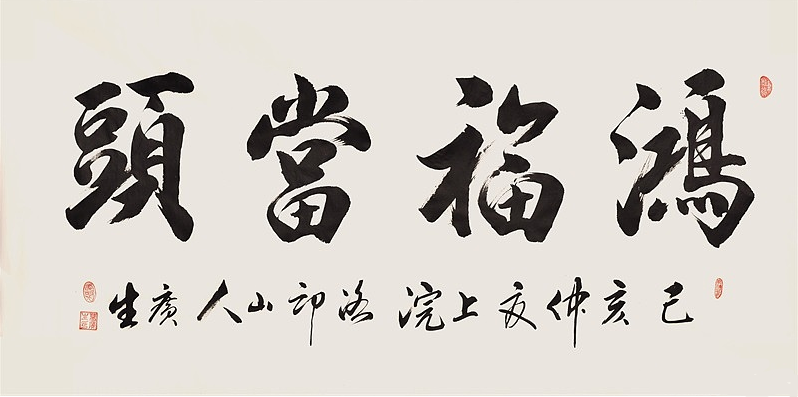 鴻福當頭
己亥仲夏上浣洛印山人廣生